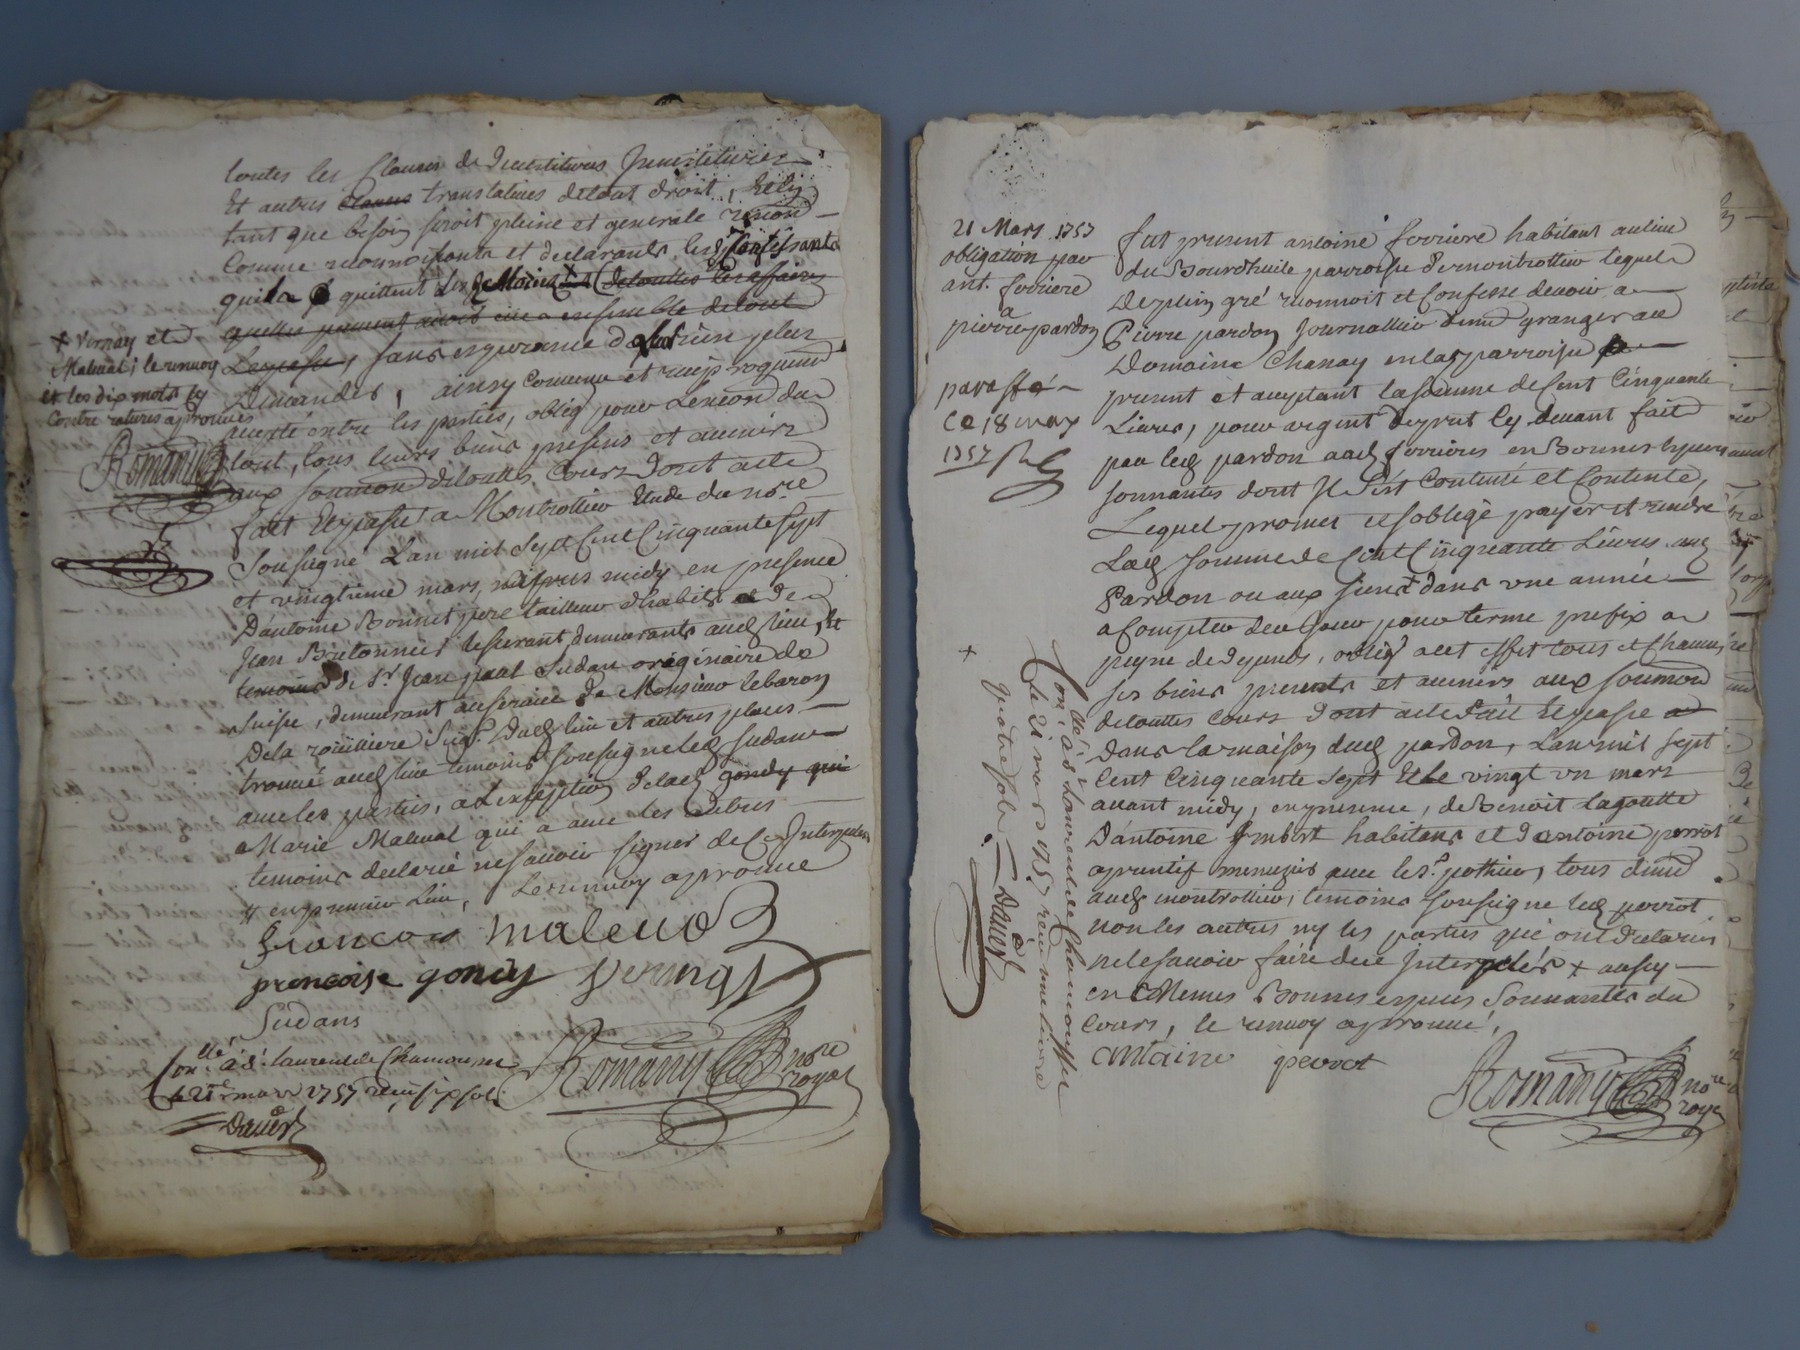 toutes les Clauses de devestitures Investitures
Et autres Clauses translatives de tout droit, Et ly
tant que besoin seroit pleine et generale renon
Comme reconnoissants et declarants lesd Confessants
quitta quittent lesd Moricaud de touttes les affaires
quelles peuvent avoir eüe ensemble de tout
Le passé, sans esperance de rien plus
Demander, ainsy convenu et reciproquem
accepté entre les parties, oblig pour Lexecon du
tout, tous leurs biens presens et avenirs
aux soumon de touttes Cours dont acte
fait Et passé a Montrottier Etude du no.re
Soussigné L'an mil Sept Cent Cinquante Sept
et vingtieme mars, après midy en presence
D'antoine Bonnet pere tailleur d'habits et de
Jean Bretonnier tisserant demeurants aud lieu, et
temoins de S.r Jean paul Sudan originaire de
Suisse, demeurant au service de Monsieur le baron
De la roüilliere Seig.r dud lieu et autres places
trouvé aud lieu temoins soussigné led Sudan
avec les parties, a L'exception de lad gondy qui
Marie Maleval qui a avec les autres
temoins declaré ne savoir signer de Ce Interpellés
# en premier Lieu, Le renvoy aprouvé
+ Vernay et
Maleval; le renvoy
et les dix mots cy
Contre raturés aprouvés
Romany
francois maleuas
francoise gondy Vernay
Sudans
Con.llé à S.t Laurent de Chamousset
le 21e mars 1757 reçu six sols
Daver
Romany no.re
royal
21 Mars 1757
obligation par
ant. ferriere
a
pierre pardon
paraffé
Ce 18 may
1757
fut present antoine ferriere habitant au lieu
du Bourdhuile parroisse de montrottier lequel
De plein gré reconnoit et Confesse devoir a
Pierre pardon Journallier dem granger au
Domaine Chanay en lad parroisse
present et acceptant la somme de Cent Cinquante
Livres, pour argent de prest Cy devant fait
par led pardon aud ferriere en Bonnes especes
sonnantes dont Il s'est Contenté et Contente,
Lequel promet et s'oblige payer et rendre
Lad Somme de Cent Cinquante Livres aud
Pardon ou aux siens dans une année
a Compter de ce jour pour terme prefix a
peyne de depends, oblig a cet effet tous et Chacuns
ses biens presents et avenirs aux soumon
de touttes Cours dont acte fait Et passé
dans la maison dud pardon, L'an mil sept
Cent Cinquante Sept Et Le vingt un mars
avant midy, en presence, de Benoit Lagoutte
D'antoine Imbert habitans et d'antoine perrot
aprentif menuzier avec le S.r pothier, tous dem
aud montrottier, temoins soussigné led perrot
non les autres ny les parties qui ont declarés
ne le savoir faire de ce Interpellés + aussy
en memes Bonnes especes Sonnantes du
Cours, le renvoy aprouvé,
antoine perrot
Romany no.re
royal
+
Con.llé à S.t Laurent de Chamousset
le 21 mars 1757 reçu une livre
quatre sols
Daver